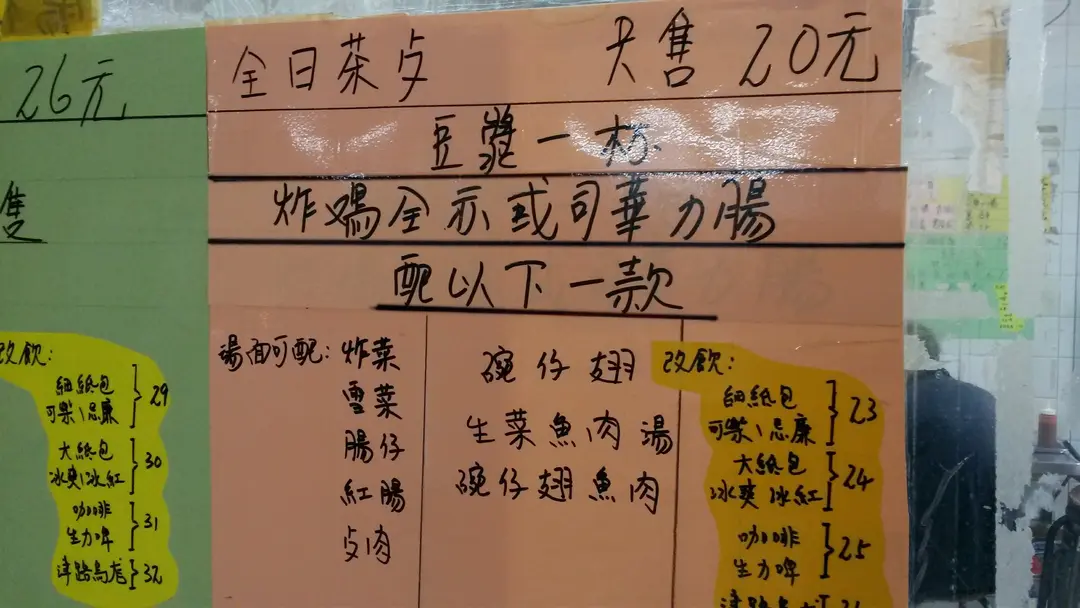 26元
售
改飲:
細紙包
可樂\忌廉 }29
大紙包
冰爽\冰紅 }30
咖啡
生力啤 }31
津路烏龙 }32
全日茶歺 只售 20元
豆漿一杯
炸媽全示或司華力腸
配以下一款
湯面可配: 炸菜
雪菜
腸仔
紅腸
歺肉
碗仔翅
生菜魚肉湯
碗仔翅魚肉
改飲:
細紙包
可樂\忌廉 }23
大紙包
冰爽 冰紅 }24
咖啡
生力啤 }25